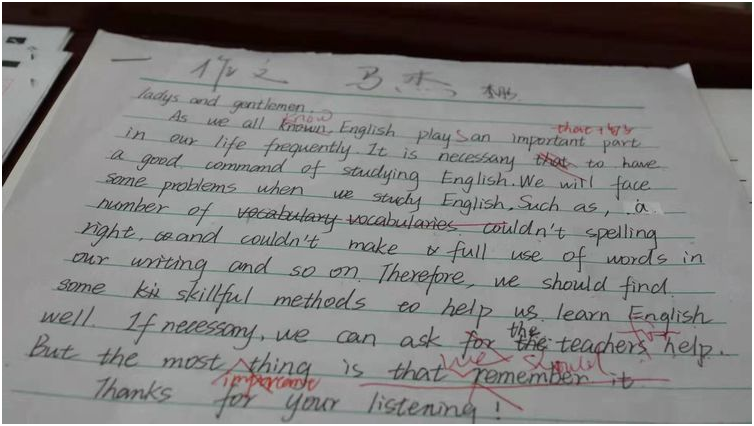 一 作文 马杰
ladys and gentlemen.
know
As we all known, English plays an important part
in our life frequently. It is necessary that to have
a good command of studying English. We will face
some problems when we study English. Such as, a
number of vocabulary vocabularies couldn't spelling
right, and couldn't make full use of words in
our writing and so on. Therefore, we should find
some skillful methods to help us learn English
well. If necessary, we can ask for the teachers help.
But the most thing is that remember it
important we should
Thanks for your listening!